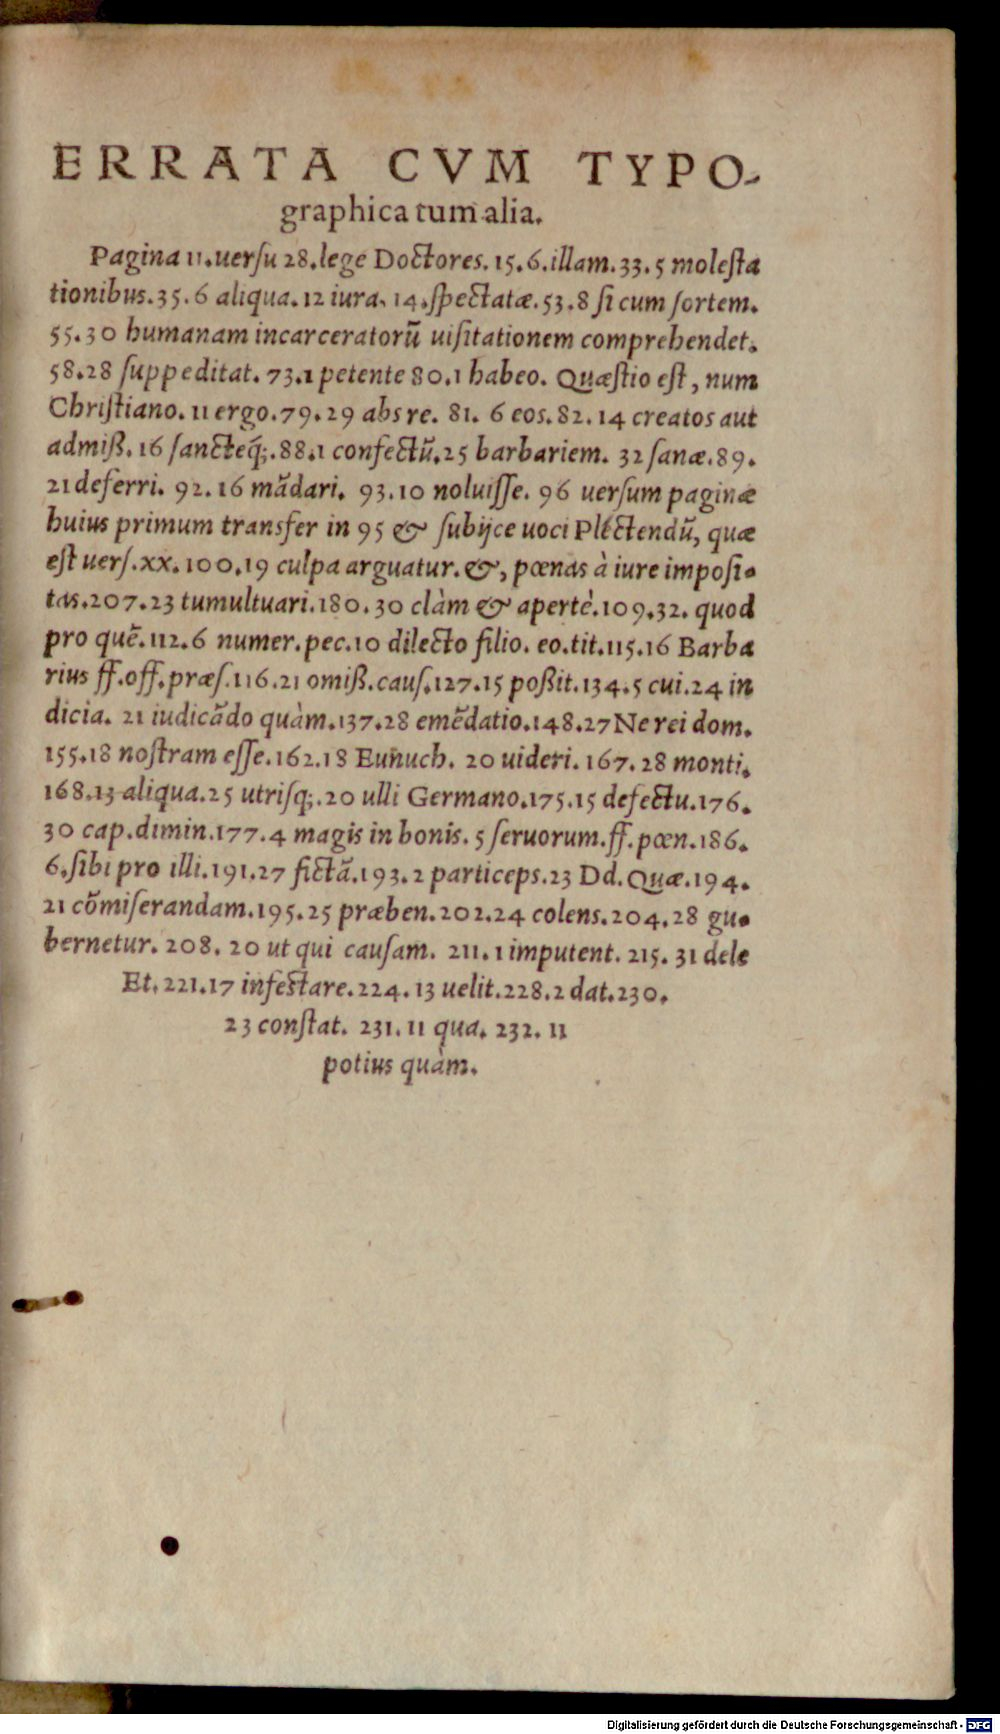 ERRATA CVM TYPO-
graphica tum alia.
Pagina 11. uerſu 28. lege Doctores. 15. 6. illam. 33. 5 moleſta
tionibus. 35. 6 aliqua. 12 iura. 14. ſpectatæ. 53. 8 ſi cum ſortem.
55. 30 humanam incarceratorũ uiſitationem comprehendet.
58. 28 ſuppeditat. 73. 1 petente 80. 1 habeo. Quæſtio eſt, num
Chriſtiano. 11 ergo. 79. 29 abs re. 81. 6 eos. 82. 14 creatos aut
admiß. 16 ſancteq́;. 88. 1 confectũ. 25 barbariem. 32 ſanæ. 89.
21 deferri. 92. 16 mãdari. 93. 10 noluiſſe. 96 uerſum paginæ
huius primum transfer in 95 & ſubijce uoci Plectendũ, quæ
eſt uerſ. xx. 100. 19 culpa arguatur. &, pœnas à iure impoſi-
tas. 207. 23 tumultuari. 180. 30 clàm & apertè. 109. 32. quod
pro quẽ. 112. 6 numer. pec. 10 dilecto filio. eo. tit. 115. 16 Barba
rius ff. off. præſ. 116. 21 omiß. cauſ. 127. 15 poßit. 134. 5 cui. 24 in
dicia. 21 iudicãdo quàm. 137. 28 emẽdatio. 148. 27 Ne rei dom.
155. 18 noſtram eſſe. 162. 18 Eunuch. 20 uideri. 167. 28 monti.
168. 13 aliqua. 25 utriſq;. 20 ulli Germano. 175. 15 defectu. 176.
30 cap. dimin. 177. 4 magis in bonis. 5 ſeruorum. ff. pœn. 186.
6. ſibi pro illi. 191. 27 fictã. 193. 2 particeps. 23 Dd. Quæ. 194.
21 cõmiſerandam. 195. 25 præben. 202. 24 colens. 204. 28 gu-
bernetur. 208. 20 ut qui cauſam. 211. 1 imputent. 215. 31 dele
Et. 221. 17 infectare. 224. 13 uelit. 228. 2 dat. 230.
23 conſtat. 231. 11 qua. 232. 11
potius quàm.
Digitalisierung gefördert durch die Deutsche Forschungsgemeinschaft - DFG